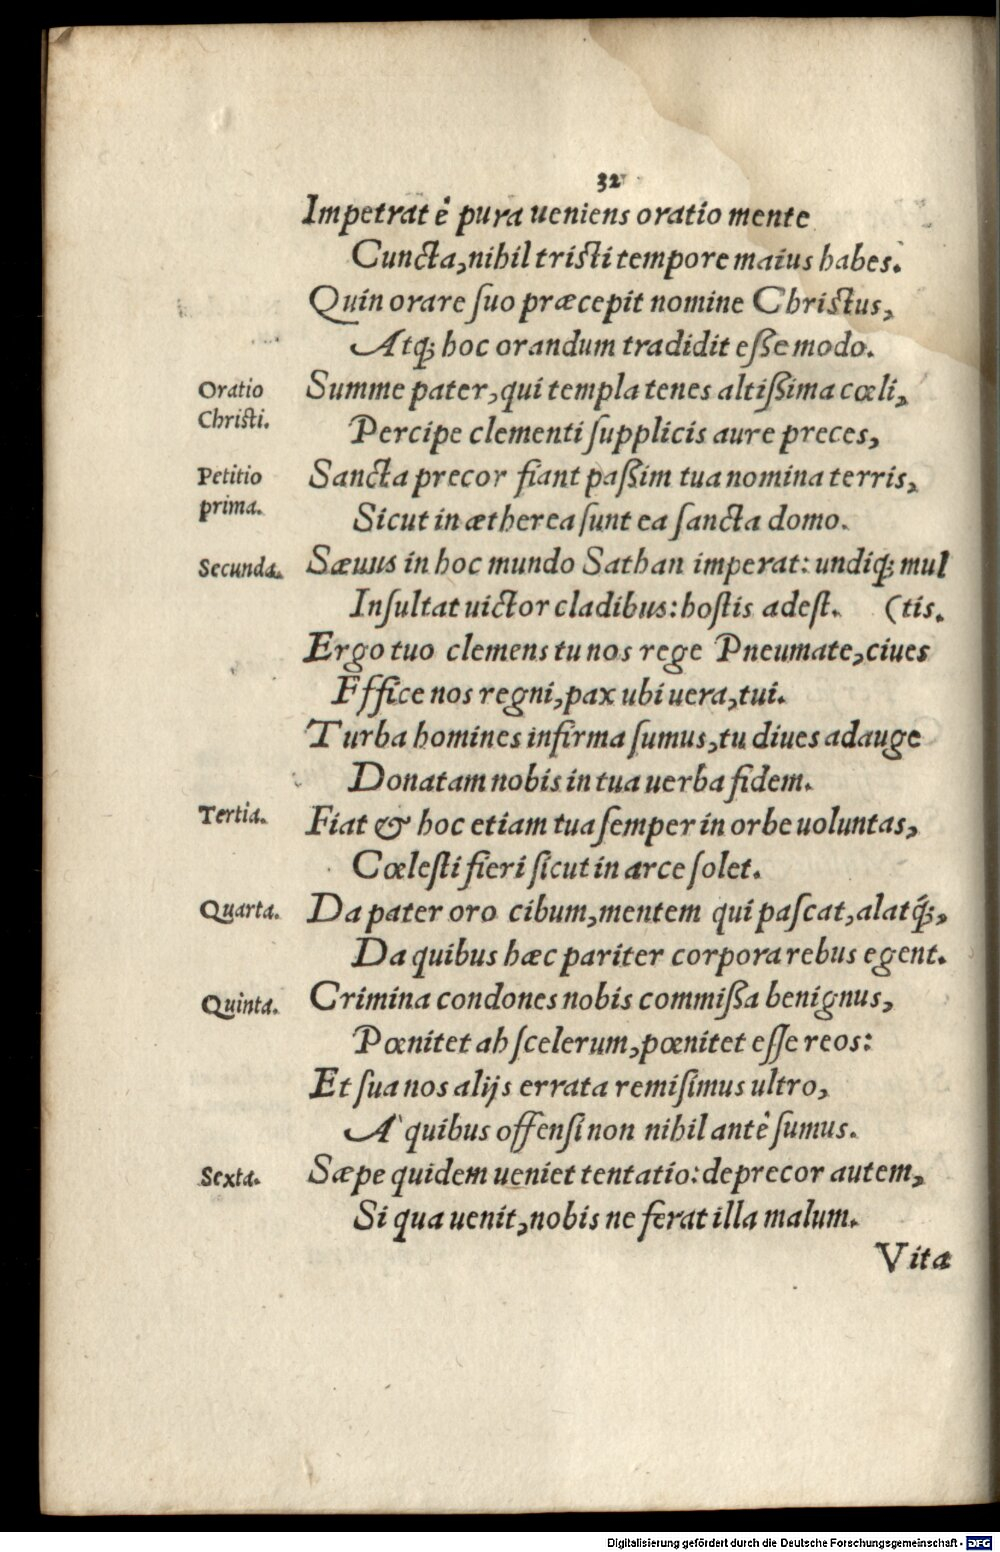 32
Impetrat ê pura ueniens oratio mente
Cuncta, nihil tristi tempore maius habes.
Quin orare suo præcepit nomine Christus,
Atq; hoc orandum tradidit eße modo.
Oratio
Christi.
Summe pater, qui templa tenes altißima cœli,
Percipe clementi supplicis aure preces,
Petitio
prima.
Sancta precor fiant paßim tua nomina terris,
Sicut in ætherea sunt ea sancta domo.
Secunda.
Sæuus in hoc mundo Sathan imperat: undiq; mul
Insultat uictor cladibus: hostis adest. (tis.
Ergo tuo clemens tu nos rege Pneumate, ciues
Effice nos regni, pax ubi uera, tui.
Turba homines infirma sumus, tu diues adauge
Donatam nobis in tua uerba fidem.
Tertia.
Fiat & hoc etiam tua semper in orbe uoluntas,
Cœlesti fieri sicut in arce solet.
Quarta.
Da pater oro cibum, mentem qui pascat, alatq́;,
Da quibus hæc pariter corpora rebus egent.
Quinta.
Crimina condones nobis commißa benignus,
Pœnitet ah scelerum, pœnitet esse reos:
Et sua nos alijs errata remisimus ultro,
A` quibus offensi non nihil antê sumus.
Sexta.
Sæpe quidem ueniet tentatio: deprecor autem,
Si qua uenit, nobis ne ferat illa malum.
Vita
Digitalisierung gefördert durch die Deutsche Forschungsgemeinschaft - DFG